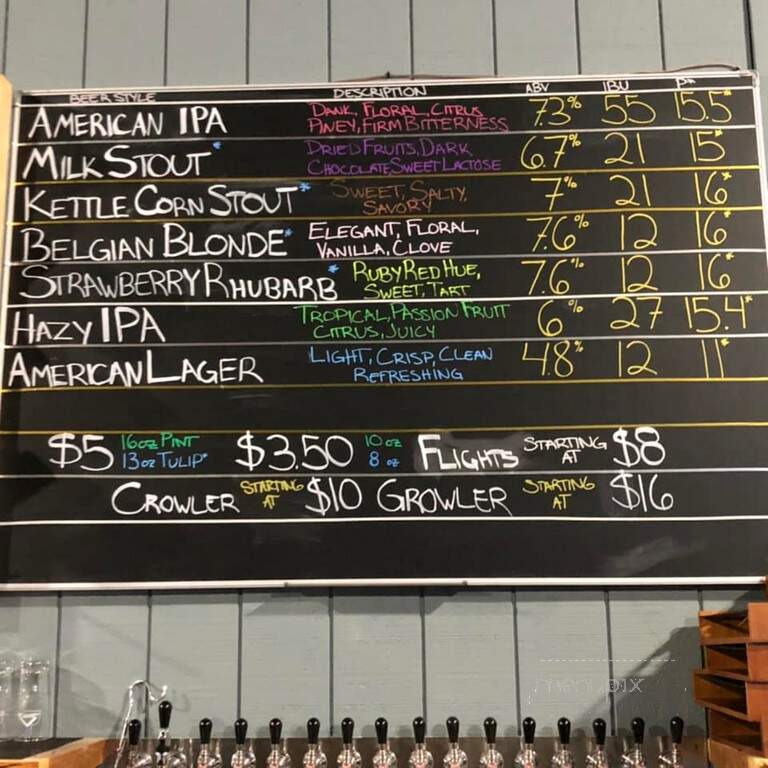 BEER STYLE DESCRIPTION ABV IBU P*
AMERICAN IPA DANK, FLORAL, CITRUS 7.3% 55 15.5*
PINEY, FIRM BITTERNESS
MILK STOUT* DRIED FRUITS, DARK, 6.7% 21 15*
CHOCOLATE, SWEET LACTOSE
KETTLE CORN STOUT* SWEET, SALTY, 7% 21 16*
SAVORY
BELGIAN BLONDE* ELEGANT, FLORAL, 7.6% 12 16*
VANILLA, CLOVE
STRAWBERRY RHUBARB* RUBY RED HUE, 7.6% 12 16*
SWEET, TART
HAZY IPA TROPICAL, PASSION FRUIT 6% 27 15.4*
CITRUS, JUICY
AMERICAN LAGER LIGHT, CRISP, CLEAN 4.8% 12 11*
REFRESHING
$5 16oz PINT $3.50 10 oz FLIGHTS STARTING AT $8
13oz TULIP* 8 oz
CROWLER STARTING AT $10 GROWLER STARTING AT $16